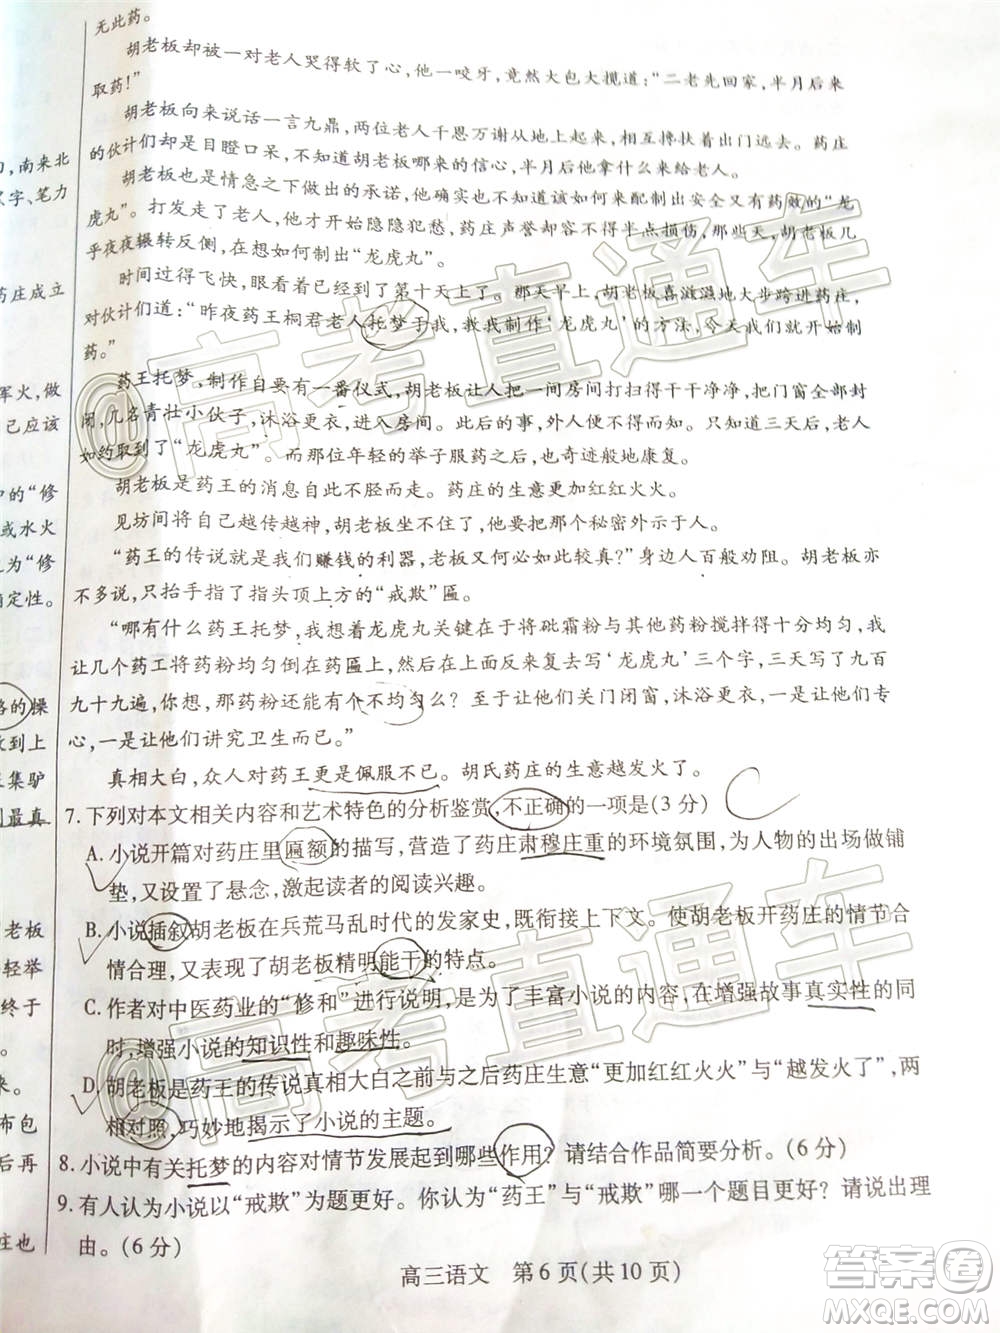 无此药。
胡老板却被一对老人哭得软了心，他一咬牙，竟然大包大揽道：“二老先回家，半月后来
取药！”
胡老板向来说话一言九鼎，两位老人千恩万谢从地上起来，相互搀扶着出门远去。药庄
的伙计们却是目瞪口呆，不知道胡老板哪来的信心，半月后他拿什么来给老人。
胡老板也是情急之下做出的承诺，他确实并不知道该如何来配制出安全又有药效的“龙
虎丸”。打发走了老人，他才开始隐隐犯愁，药庄声誉却容不得半点损伤，那些天，胡老板几
乎夜夜辗转反侧，在想如何制出“龙虎丸”。
时间过得飞快，眼看着已到了第十天上了。那天早上，胡老板喜滋滋地大步跨进药庄，
对伙计们道：“昨夜药王桐君老人托梦于我，教我制作‘龙虎丸’的方法，今天我们就开始制
药。”
药王托梦，制作自要有一番仪式，胡老板让人把一间房间打扫得干干净净，把门窗全部封
闭，几名青壮小伙子，沐浴更衣，进入房间。此后的事，外人便不得而知，只知道三天后，老人
如约取到了“龙虎丸”。而那位年轻的举子服药之后，也奇迹般地康复。
胡老板是药王的消息自此不胫而走。药庄的生意更加红红火火。
见坊间将自己越传越神，胡老板坐不住了，决定要把那个秘密外示于人。
“药王的传说就是我们赚钱的利器，老板又何必如此较真？”身边人百般劝阻。胡老板亦
不多说，只抬手指了指头顶上方的“戒欺”匾。
“哪有什么药王托梦，我想着龙虎丸关键在于将砒霜粉与其他药粉搅拌得十分均匀，我
让几个药工将药粉均匀倒在药匾上，然后在上面反复写‘龙虎丸’三个字，三天写了九百
九十九遍，你想，那药粉还能有个不均匀么？至于让他们关门闭窗，沐浴更衣，一是让他们专
心，一是让他们讲究卫生而已。”
真相大白，众人对药王更是佩服不已。胡氏药庄的生意越发火了。
7.下列对本文相关内容和艺术特色的分析鉴赏，不正确的一项是(3分)
A.小说开篇对药庄里匾额的描写，营造了药庄肃穆庄重的环境氛围，为人物的出场做铺
垫，又设置了悬念，激起读者的阅读兴趣。
B.小说插叙胡老板在兵荒马乱时代的发家史，既衔接上下文。使胡老板开药庄的情节合
情合理，又表现了胡老板精明能干的特点。
C.作者对中医药业的“修和”进行说明，是为了丰富小说的内容，在增强故事真实性的同
时，增强小说的知识性和趣味性。
D.胡老板是药王的传说真相大白之前与之后药庄生意“更加红红火火”与“越发火了”，两
相对照，巧妙地揭示了小说的主题。
8.小说中有关托梦的内容对情节发展起到哪些作用？请结合作品简要分析。(6分)
9.有人认为小说以“戒欺”为题更好。你认为“药王”与“戒欺”哪一个题目更好？请说出理
由。(6分)
高三语文 第6页(共10页)